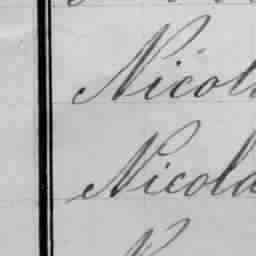 Nicol
Nicola